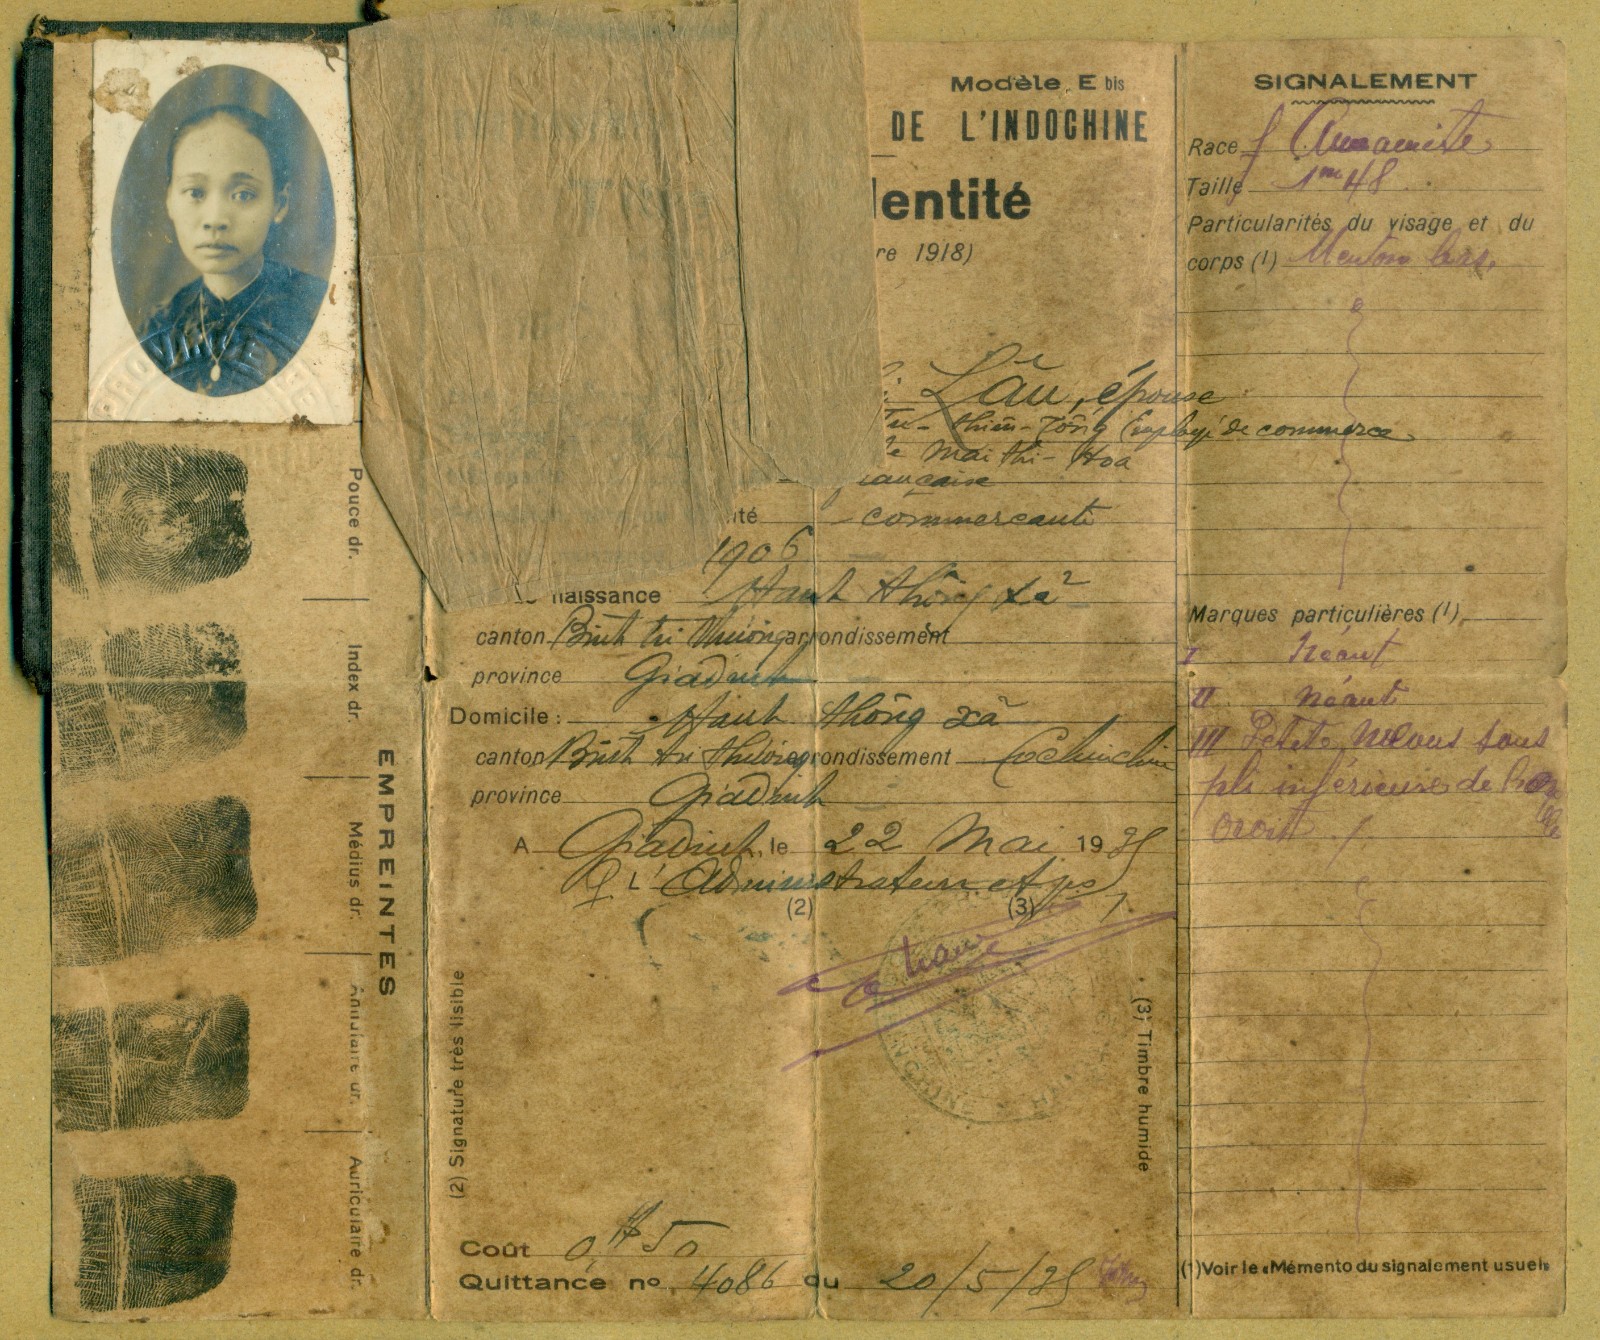 PROVINCE
Pouce dr.
Index dr.
Médius dr.
Annulaire dr.
Auriculaire dr.
EMPREINTES
Modèle E bis
DE L'INDOCHINE
dentité
re 1918)
Lâu, épouse
Thiên-Tông Employé de commerce
Mai thi-Hoa
ançaise
ité commercante
1906
naissance Hanh thông xã
canton Binh tri thuong arrondissement
province Giadinh
Domicile : Hanh thông xã
canton Binh tri thuong arrondissement Cochinchine
province Giadinh
A Giadinh, le 22 Mai 1935
L'Administrateur
(2) (3)
(2) Signature très lisible
(3) Timbre humide
Coût 0,$50
Quittance no 4086 du 20/5/35
SIGNALEMENT
Race f Annamite
Taille 1m48
Particularités du visage et du
corps (1) Menton bas.
Marques particulières (1)
I Néant
II Néant
III Petite sous
pli inférieure de
Droit
(1) Voir le «Mémento du signalement usuel»